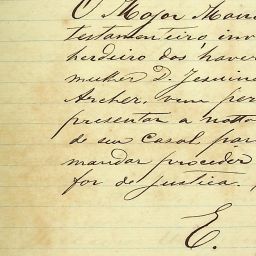 O Major Mano
testamenteiro inv
herdeiro dos haver
mulher D. Jesuina
Archer, vem per
presentar a
de seu Casal par
mandar proceder
for de justica.
E.